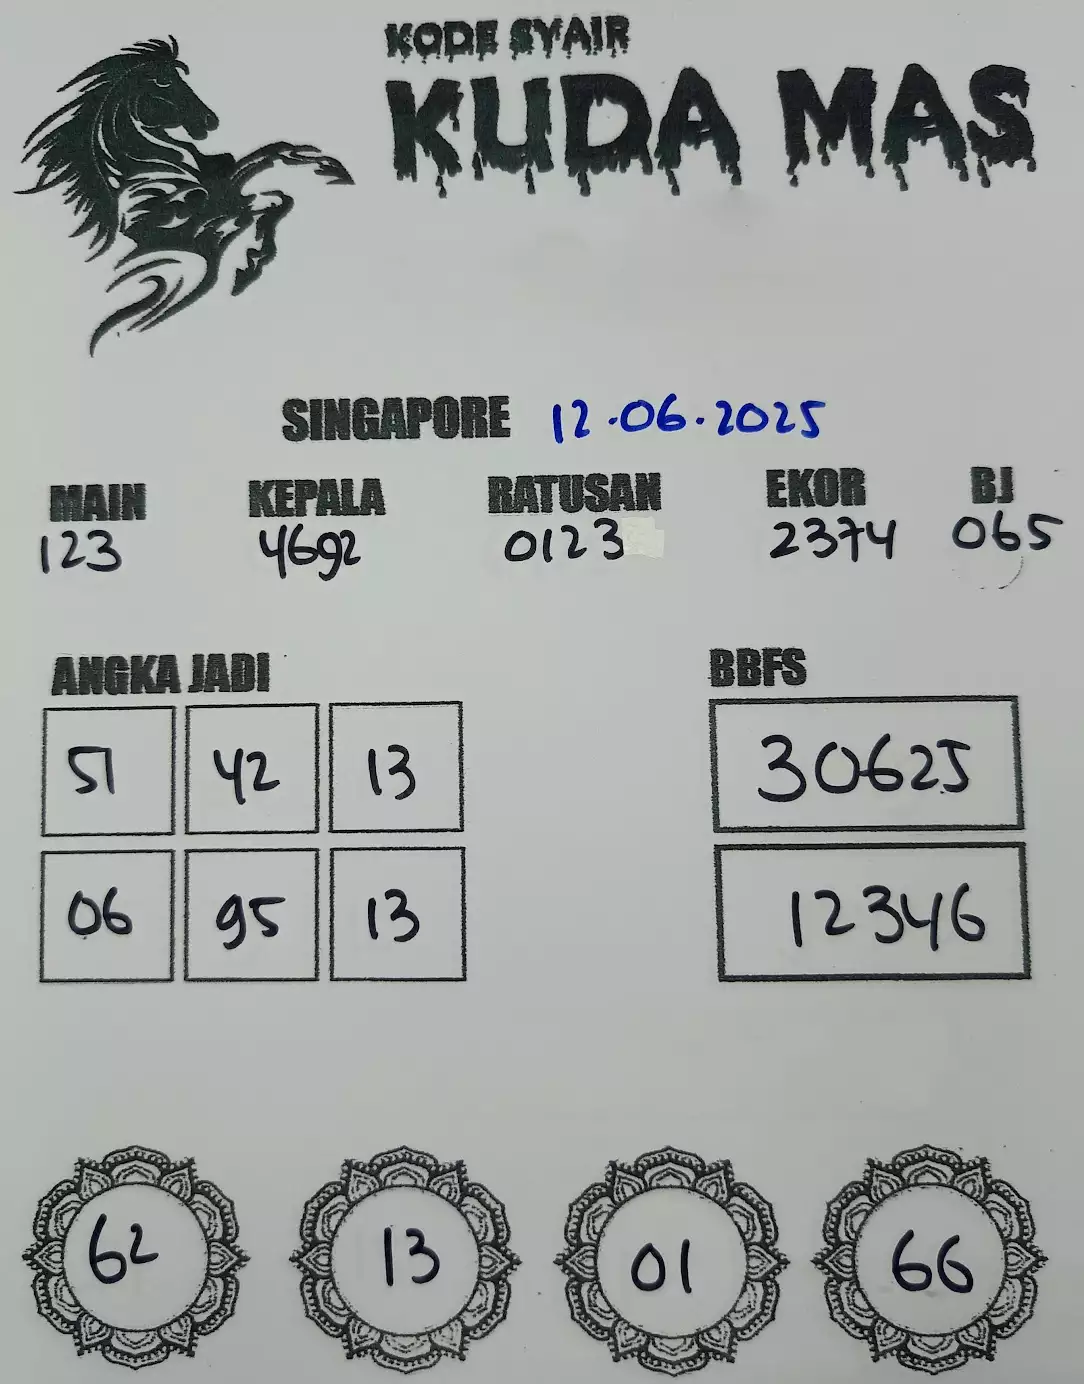 KODE SYAIR
KUDA MAS
SINGAPORE 12.06.2025
MAIN KEPALA RATUSAN EKOR BJ
123 4692 0123 2374 065
ANGKA JADI BBFS
51 42 13 30625
06 95 13 12346
62 13 01 66